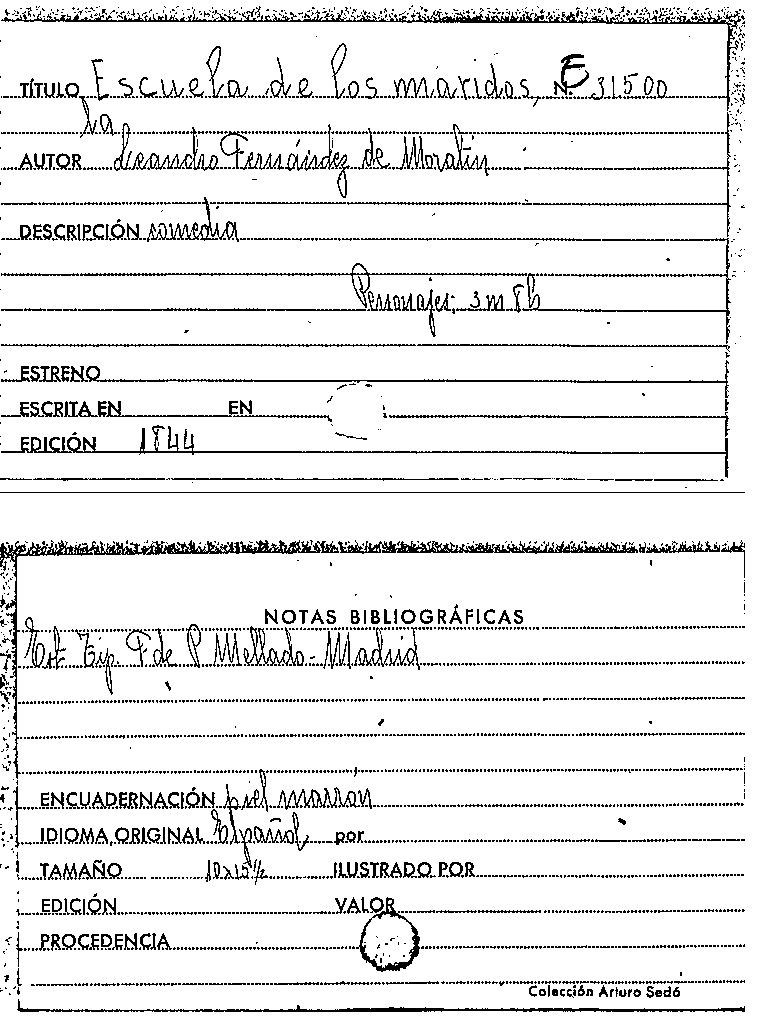 TÍTULO Escuela de los maridos, N.º E 31500
La
AUTOR Leandro Fernández de Moratín
DESCRIPCIÓN comedia
Personajes: 3m 8h
ESTRENO
ESCRITA EN EN
EDICIÓN 1844
NOTAS BIBLIOGRÁFICAS
Est. Tip. F de P Mellado - Madrid
ENCUADERNACIÓN piel marron
IDIOMA ORIGINAL Español por
TAMAÑO 10x15½ ILUSTRADO POR
EDICIÓN VALOR
PROCEDENCIA
Colección Arturo Sedó